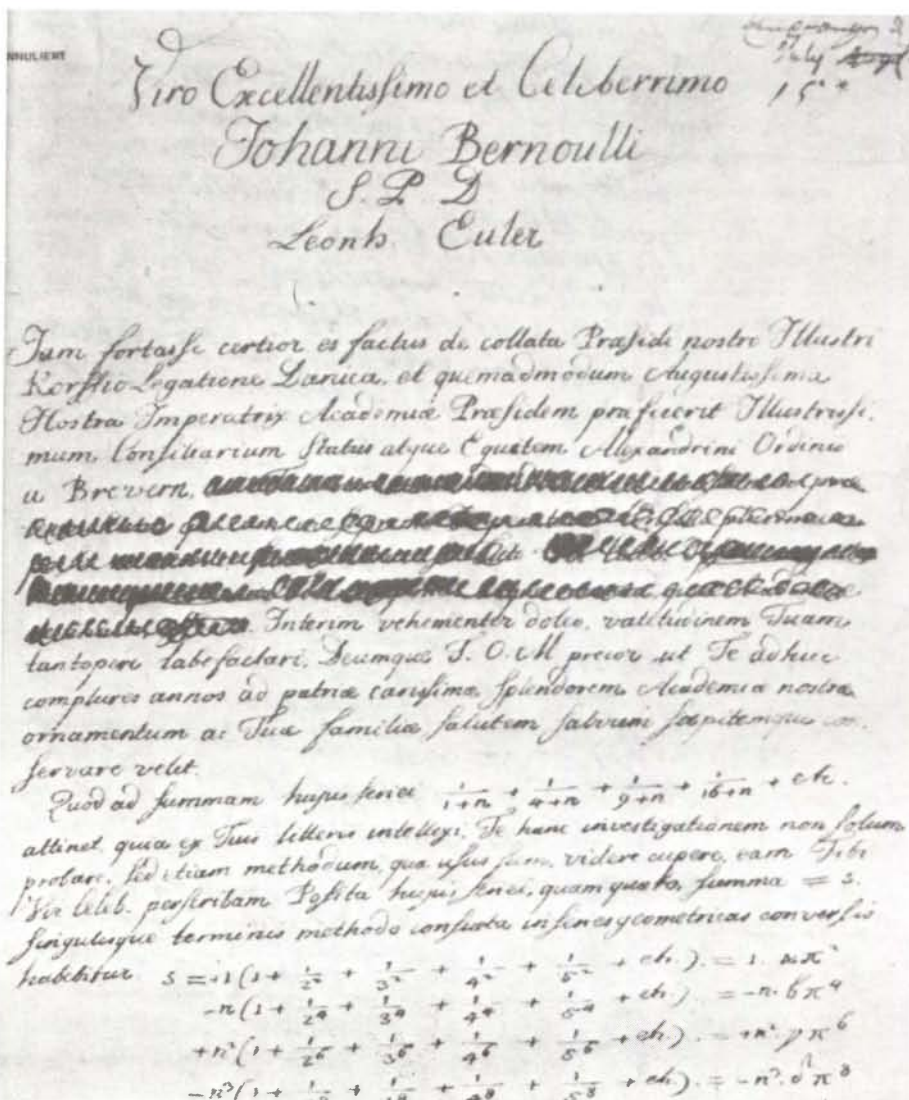 NNULIERT
July
15
Viro Excellentissimo et Celeberrimo
Johanni Bernoulli
S. P. D
Leonh. Euler
Jam fortasse certior es factus de collata Præsidi nostro Illustri
Korffio Legatione Danica, et quemadmodum Augustissima
Nostra Imperatrix Academiæ Præsidem præfecerit Illustrissi-
mum Consiliarium Status atque Equitem Alexandrini Ordinis
a Brevern.
Interim vehementer doleo, valitudinem Tuam
tantopere labefactari, Deumque T. O. M precor ut Te adhuc
complures annos ad patriæ carissimæ splendorem Academiæ nostræ
ornamentum ac Tuæ familiæ salutem salvum sospitemque con-
servare velit.
Quod ad summam hujus seriei 1/(1+n) + 1/(4+n) + 1/(9+n) + 1/(16+n) + etc.
attinet, quia ex Tuis litteris intellexi, Te hanc investigationem non solum
probare, sed etiam methodum, qua usus sum, videre cupere, eam Tibi
Vir Celeb. perscribam Posita hujus seriei, quam quæro, summa = s.
singulisque terminis methodo consueta in series geometricas conversis
habebitur s = +1(1 + 1/2² + 1/3² + 1/4² + 1/5² + etc.) = 1. απ²
-n(1 + 1/2⁴ + 1/3⁴ + 1/4⁴ + 1/5⁴ + etc.) = -n. βπ⁴
+n²(1 + 1/2⁶ + 1/3⁶ + 1/4⁶ + 1/5⁶ + etc.) = +n². γπ⁶
-n³(1 + 1/2⁸ + 1/3⁸ + 1/4⁸ + 1/5⁸ + etc.) = -n³. δπ⁸